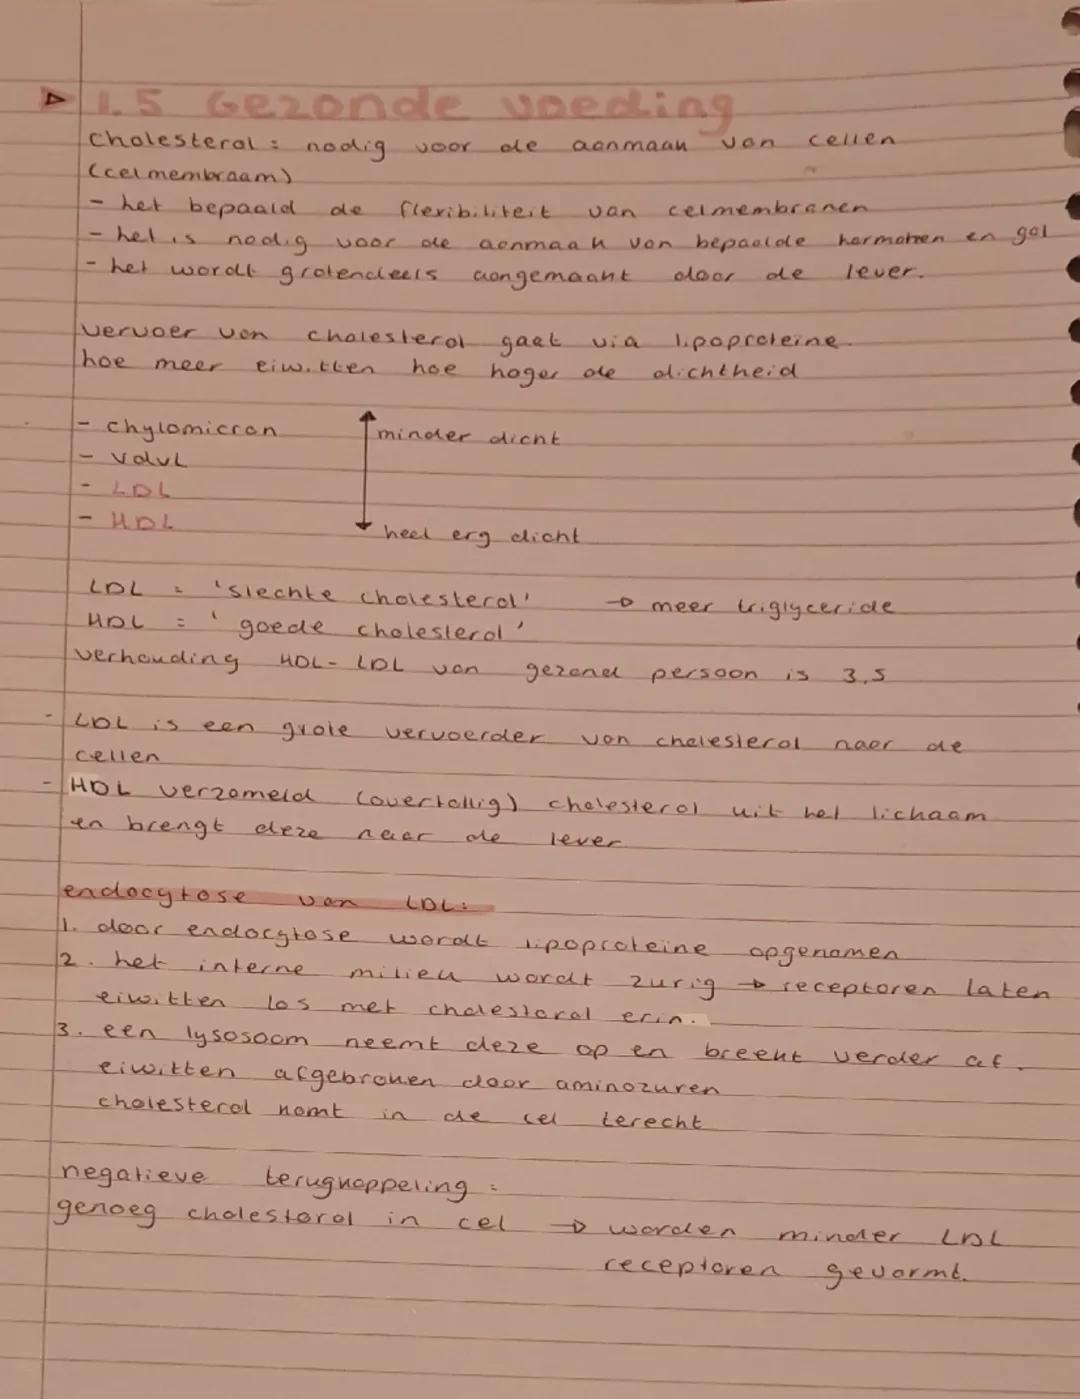 1.5 Gezonde voeding
cholesterol: nodig voor de aanmaak van cellen
(celmembraam)
- het bepaald de flexibiliteit van celmembranen
- het is nodig voor de aanmaak van bepaalde hormonen en gal
- het wordt grotendeels aangemaakt door de lever.
vervoer van cholesterol gaat via lipoproteine.
hoe meer eiwitten hoe hoger de dichtheid
- chylomicron minder dicht
- VLDL
- LDL
- HDL
heel erg dicht
LDL = 'slechte cholesterol' → meer triglyceride
HDL = 'goede cholesterol'
verhouding HDL-LDL van gezond persoon is 3,5
- LDL is een grote vervoerder van cholesterol naar de
cellen
- HDL verzameld (overtollig) cholesterol uit het lichaam
en brengt deze naar de lever
endocytose van LDL:
1. door endocytose wordt lipoproteine opgenomen
2. het interne milieu wordt zurig → receptoren laten
eiwitten los met cholesterol erin.
3. een lysosoom neemt deze op en breekt verder af.
eiwitten afgebroken door aminozuren
cholesterol komt in de cel terecht
negatieve terugkoppeling:
genoeg cholesterol in cel → worden minder LDL
receptoren gevormt.